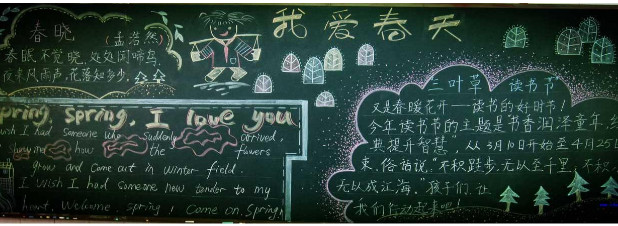 我爱春天
春晓
(孟浩然)
春眠不觉晓,处处闻啼鸟,
夜来风雨声,花落知多少。
pring, Spring, I love you
wish I had someone who suddenly arrived,
how the flowers
grow and come out in winter field.
I wish I had someone new tender to my
heart. Welcome, spring! Come on, Spring,
三叶草 读书节
又是春暖花开——读书的好时节!
今年读书节的主题是书香润泽童年,经
典提升智慧。从3月10日开始至4月25日
束,俗话说:"不积跬步,无以至千里,不积
无以成江海,孩子们,让
我们行动起来吧!